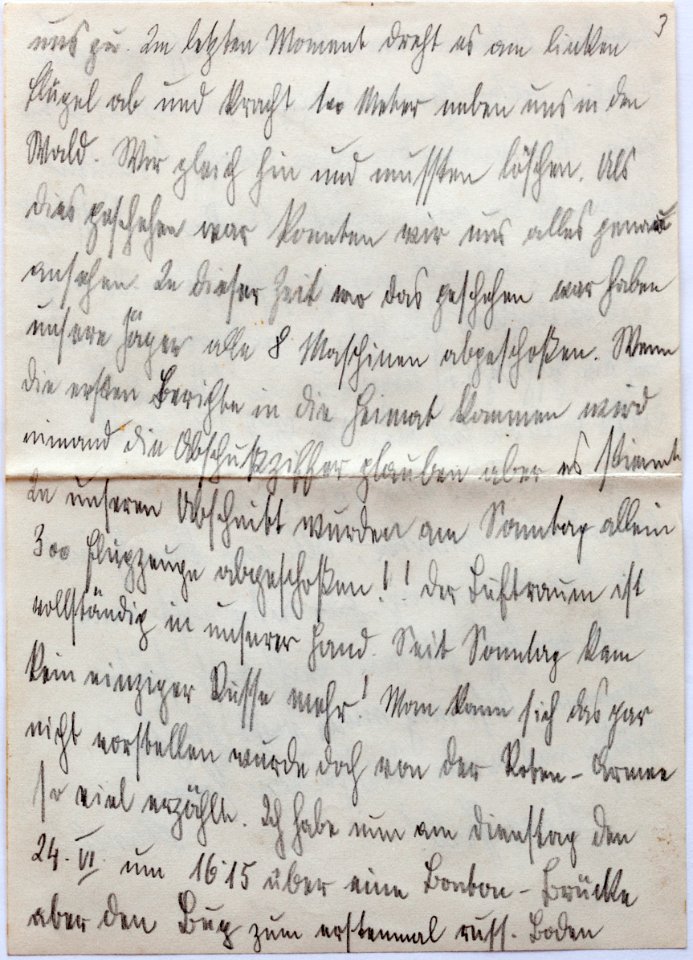 3
uns zu. Im letzten Moment dreht es am linken
Flügel ab und kracht 100 Meter neben uns in den
Wald. Wir gleich hin und mussten löschen. Als
dies geschehen war konnten wir uns alles genau
ansehen. In dieser Zeit wo das geschehen war haben
unsere Jäger alle 8 Maschinen abgeschoßen. Wenn
die ersten Berichte in die Heimat kommen wird
niemand die Abschußziffer glauben aber es stimmt
In unseren Abschnitt wurden am Sonntag allein
300 Flugzeuge abgeschoßen!! Der Luftraum ist
vollständig in unserer Hand. Seit Sonntag kam
kein einziger Russe mehr! Man kann sich das gar
nicht vorstellen wurde doch von der Roten-Armee
so viel erzählt. Ich habe nun am Dienstag den
24. VI. um 16.15 über eine Bonbon-Brücke
über den Bug zum erstenmal russ. Boden